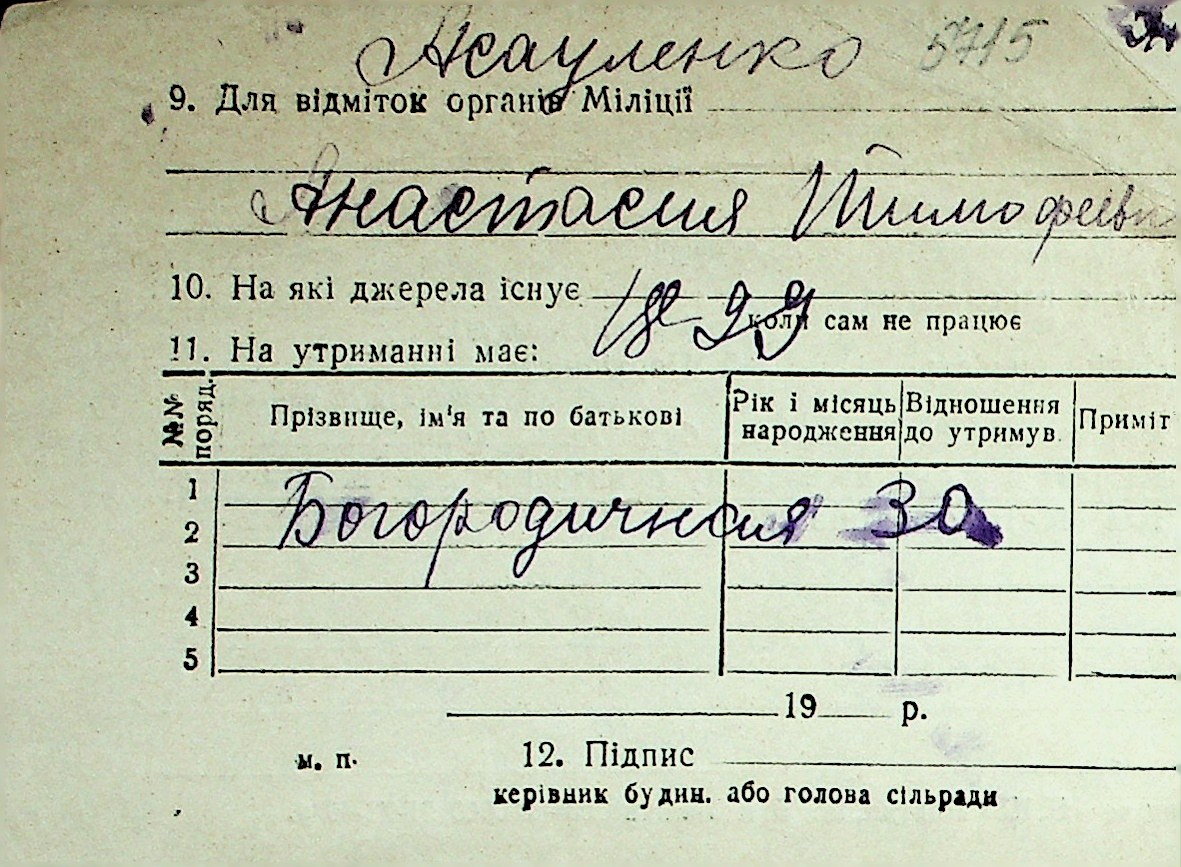 Асауленко 5715
9. Для відміток органів Міліції
Анастасия Тимофеевн
10. На які джерела існує
1899
коли сам не працює
11. На утриманні має:
№№ поряд. Прізвище, ім'я та по батькові Рік і місяць народження Відношення до утримув. Приміт
1
Богородичная 30
2
3
4
5
19 р.
м. п. 12. Підпис
керівник будин. або голова сільради